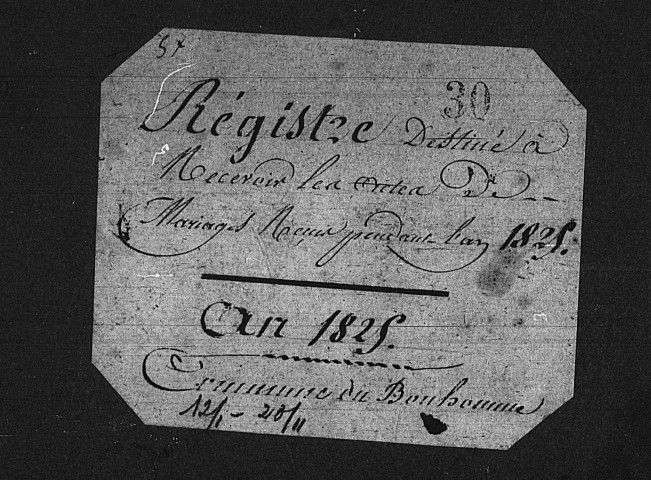 57
30
Régistre Destiné à
Recevoir les actes De
Mariages Reçus pendant l'an 1825.
An 1825.
Commune du Bonhomme
12/1 - 20/11